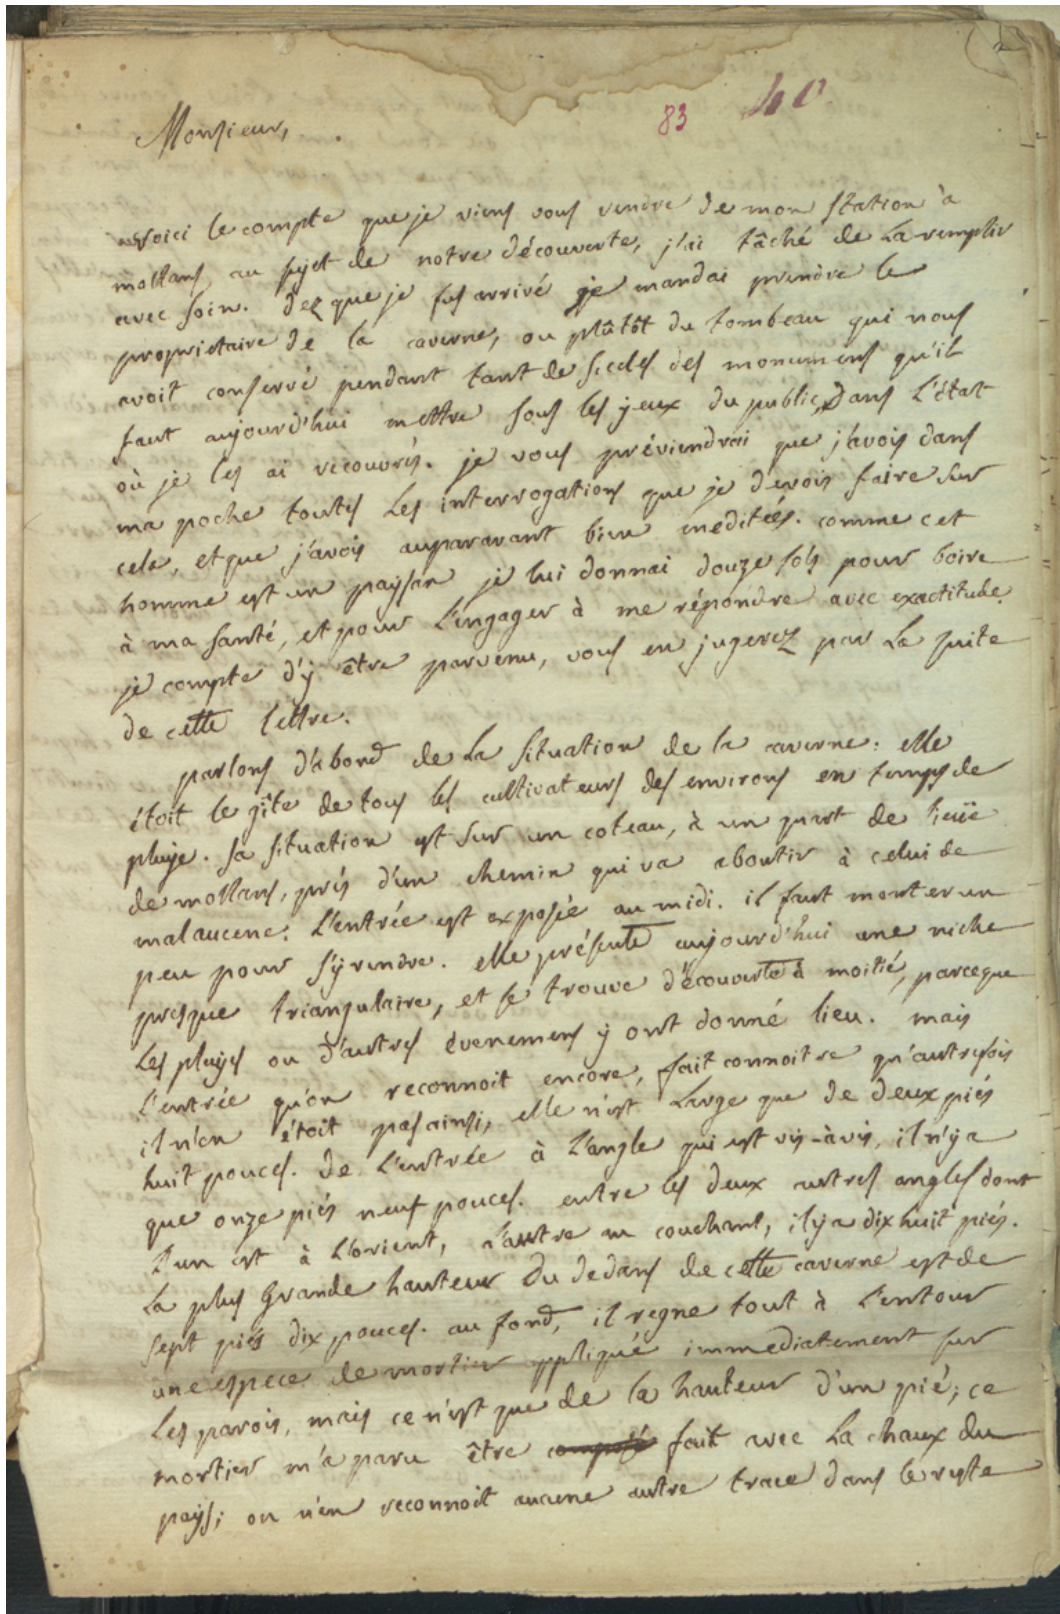 83 40
Monsieur,
voici le compte que je viens vous rendre de mon station à
mollans au sujet de notre découverte, j'ai tâché de La remplir
avec soin. dez que je fus arrivé je mandai prendre le
proprietaire de la caverne, ou plûtôt du tombeau qui nous
avoit conservé pendant tant de siecles des monumens qu'il
faut aujourd'hui mettre sous les yeux du public, dans L'état
où je les ai recouvrés. je vous préviendrai que j'avois dans
ma poche toutes Les interrogations que je devois faire sur
cela, et que j'avois auparavant bien meditées. comme cet
homme est un paysan je lui donnai douze sols pour boire
à ma santé, et pour L'engager à me répondre avec exactitude.
je compte d'y être parvenu, vous en jugerez par La suite
de cette lettre.
parlons d'abord de La situation de la caverne: elle
étoit le gîte de tous les cultivateurs des environs en temps de
pluye. sa situation est sur un coteau, à un quart de lieüe
de mollans, près d'un chemin qui va aboutir à celui de
malaucene. L'entrée est exposée au midi. il faut monter un
peu pour s'y rendre. elle présente aujourd'hui une niche
presque triangulaire, et se trouve découverte à moitié, parceque
Les pluyes ou d'autres évenemens y ont donné lieu. mais
L'entrée qu'on reconnoit encore, fait connoitre qu'autrefois
il n'en étoit pas ainsi, elle n'est Large que de deux piés
huit pouces. de L'entrée à L'angle qui est vis-à-vis, il n'y a
que onze piés neuf pouces. entre les deux autres angles dont
L'un est à L'orient, L'autre au couchant, il y a dix huit piés.
La plus grande hauteur du dedans de cette caverne est de
sept piés dix pouces. au fond, il regne tout à L'entour
une espece de mortier appliqué immediatement sur
Les parois, mais ce n'est que de la hauteur d'un pié; ce
mortier m'a paru être composé fait avec La chaux du
pays; on n'en reconnoit aucune autre trace dans le reste